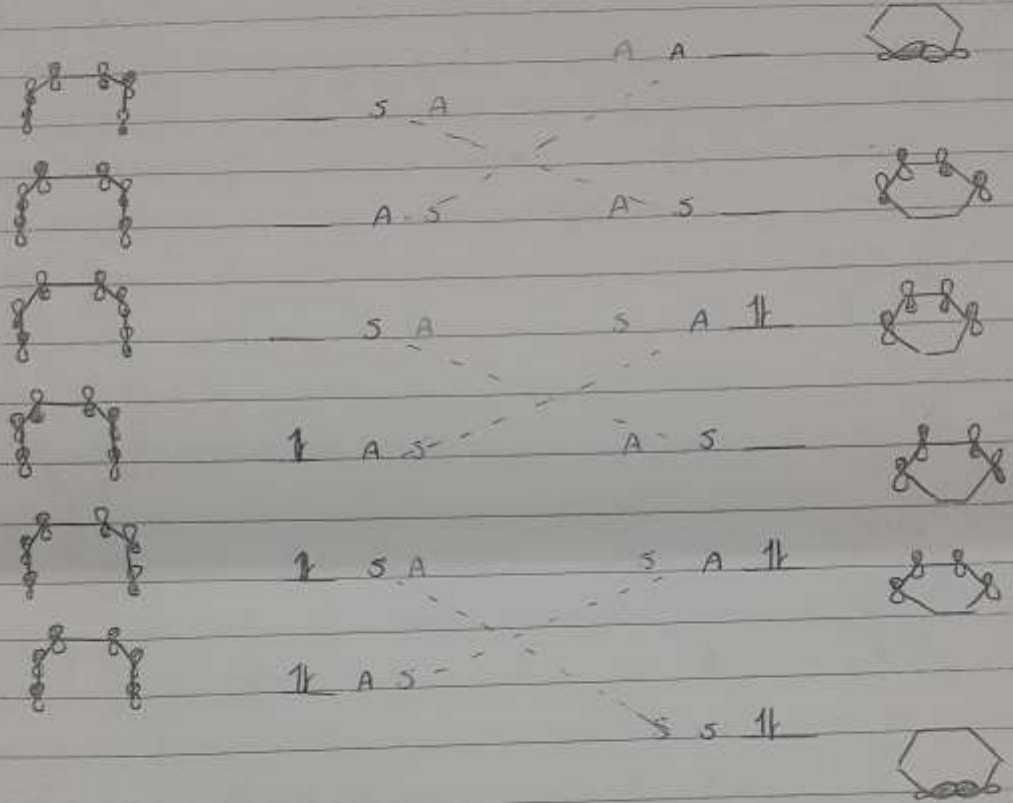 A A
S A
A S A S
S A S A ⥮
↿ A S A S
↿ S A S A ⥮
⥮ A S
S S ⥮